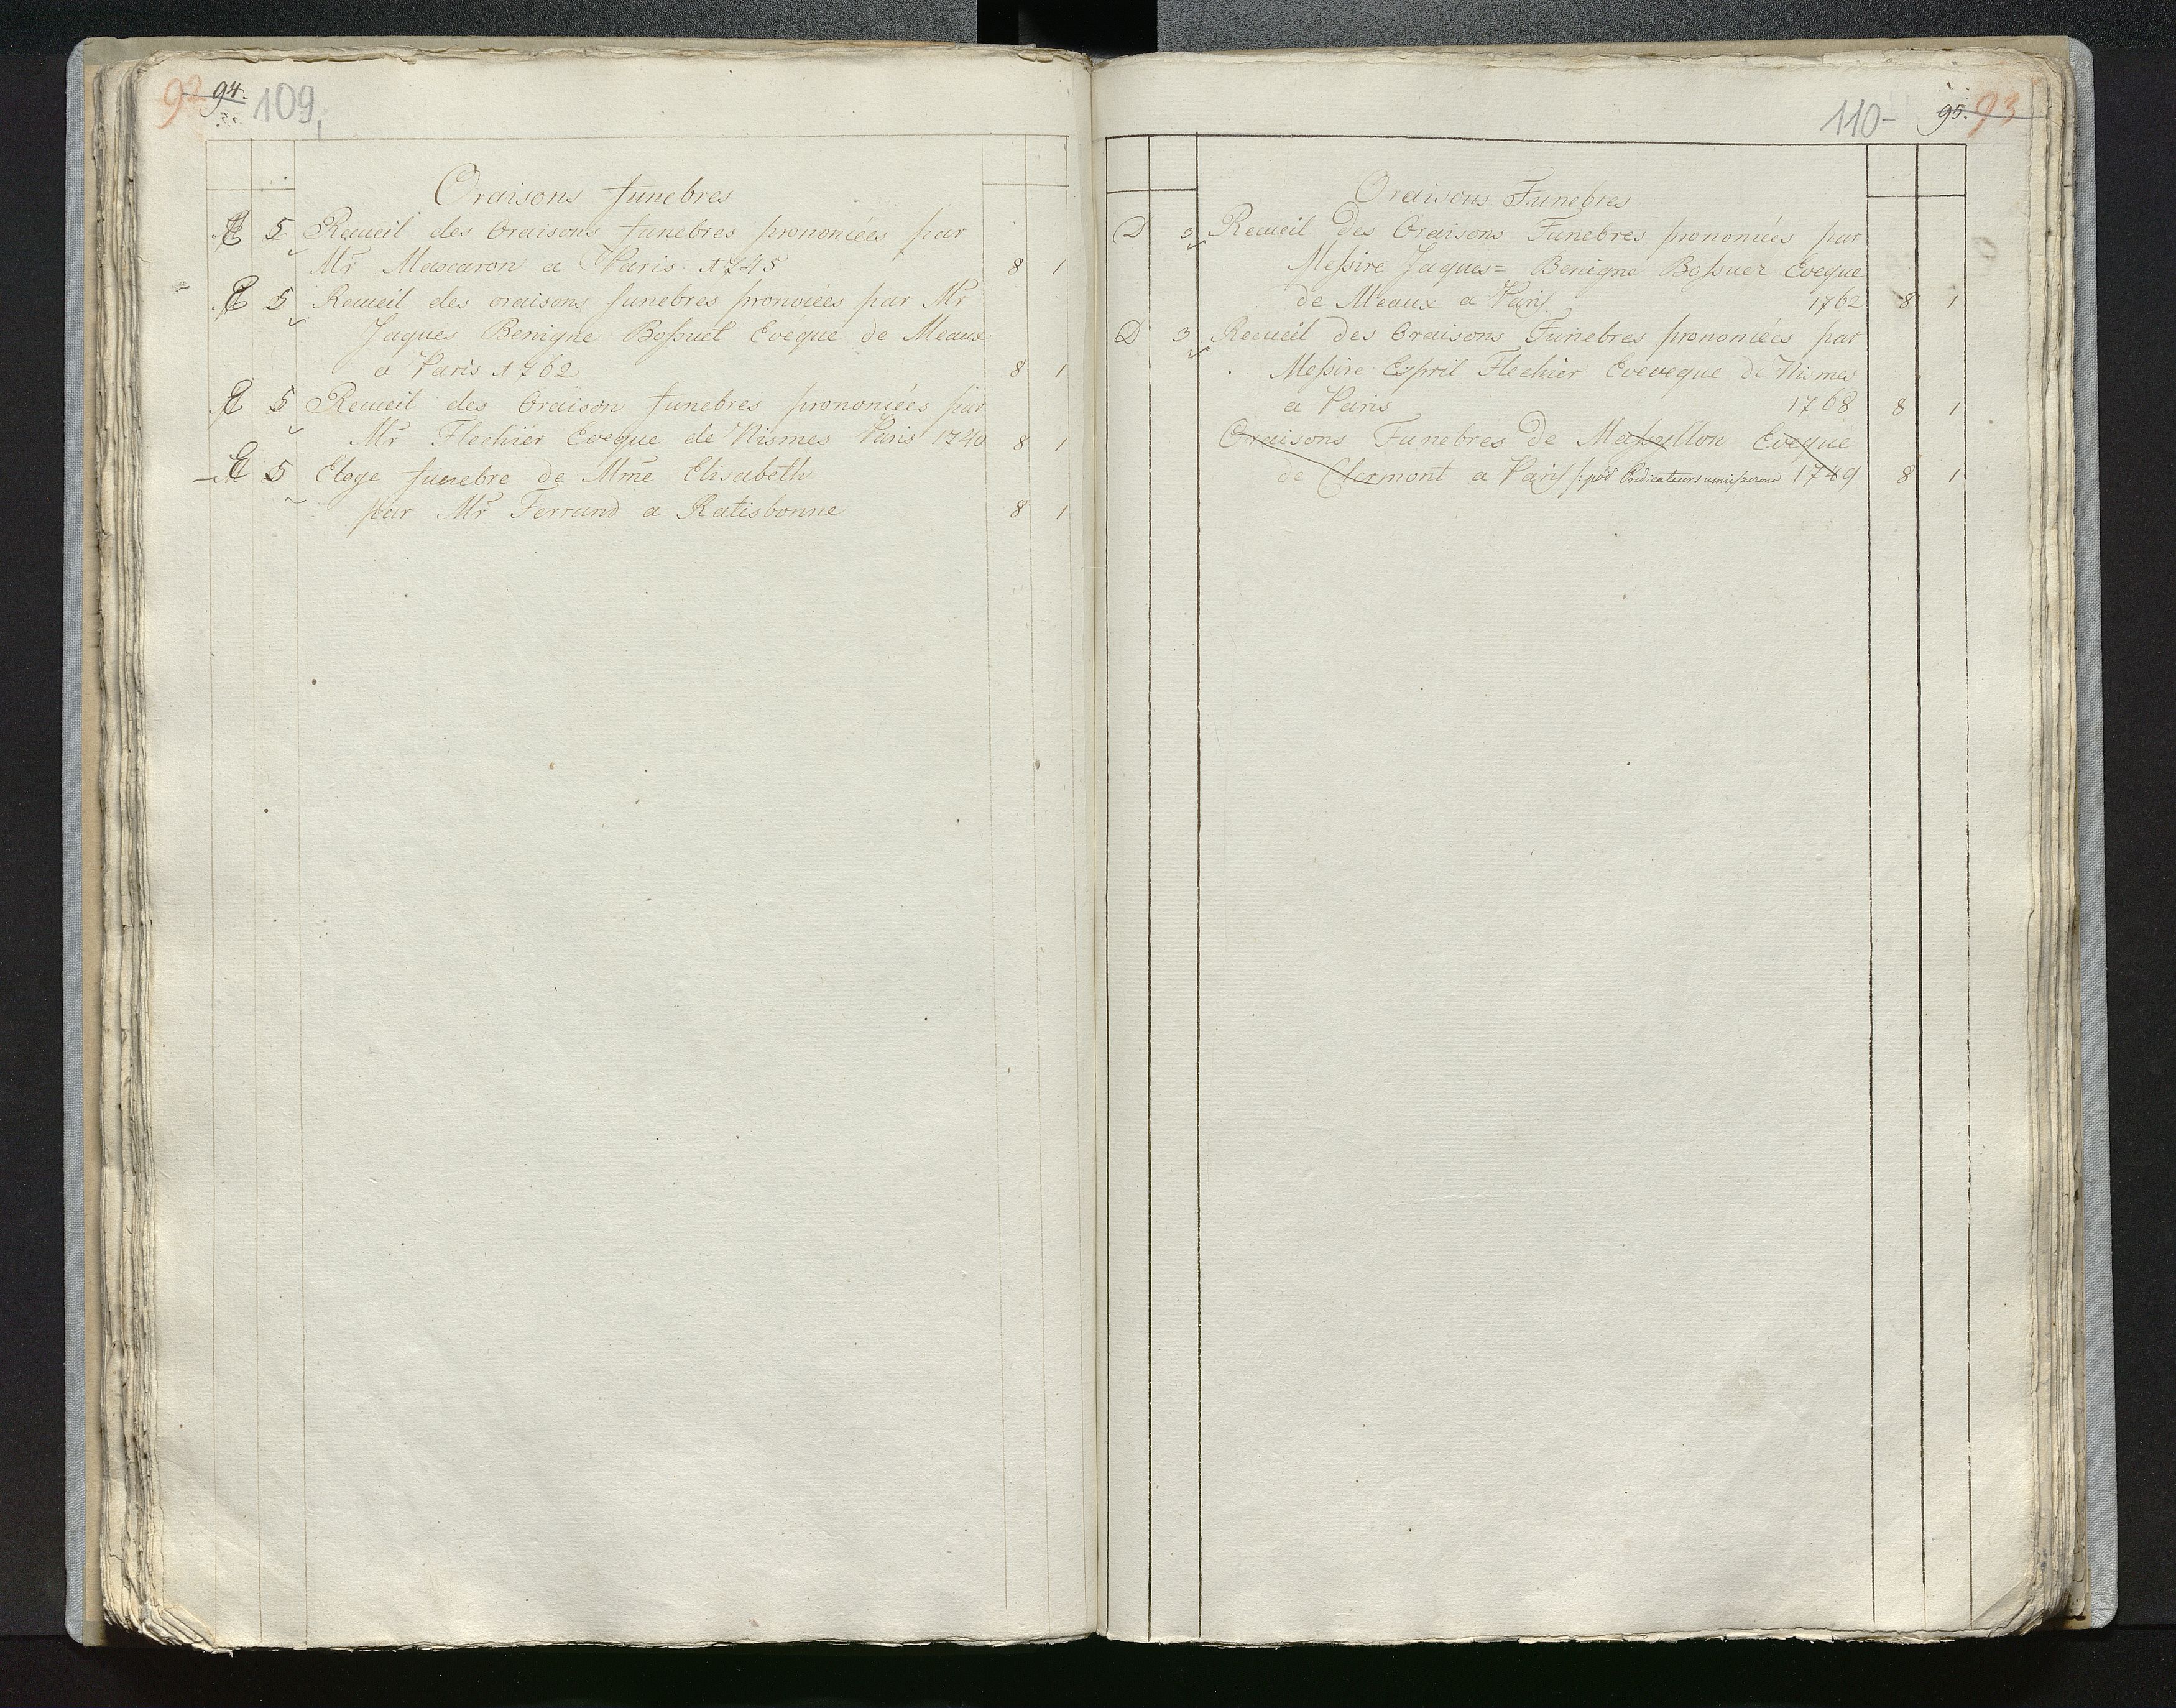 92 94. 109,
Oraisons funebres
E 5 Recueil des Oraisons funebres prononcées par
Mr Mascaron a Paris 1745 8 1
E 5 Recueil des oraisons funebres pronocées par Mr
Jaques Benigne Boſsuet Evéque de Meaux
a Paris 1762 8 1
E 5 Recueil des Oraison funebres prononcées par
Mr Flechier Eveque de Nismes Paris 1740 8 1
E 5 Eloge funebre de Mme Elisabeth
par Mr Ferrand a Ratisbonne 8 1
110- 95. 93
Oraisons Funebres
D 3 Recueil des Oraisons Funebres prononcées par
Meſsire Jaques= Benigne Boſsuer Eveque
de Meaux a Paris 1762 8 1
D 3 Recueil des Oraisons Funebres prononcées par
Meſsire Esprit Flechier Eveveque de Nismes
a Paris 1768 8 1
Oraisons Funebres de Maſsyllon Eveque
de Clermont a Paris pod Prédicateurs 1749 8 1